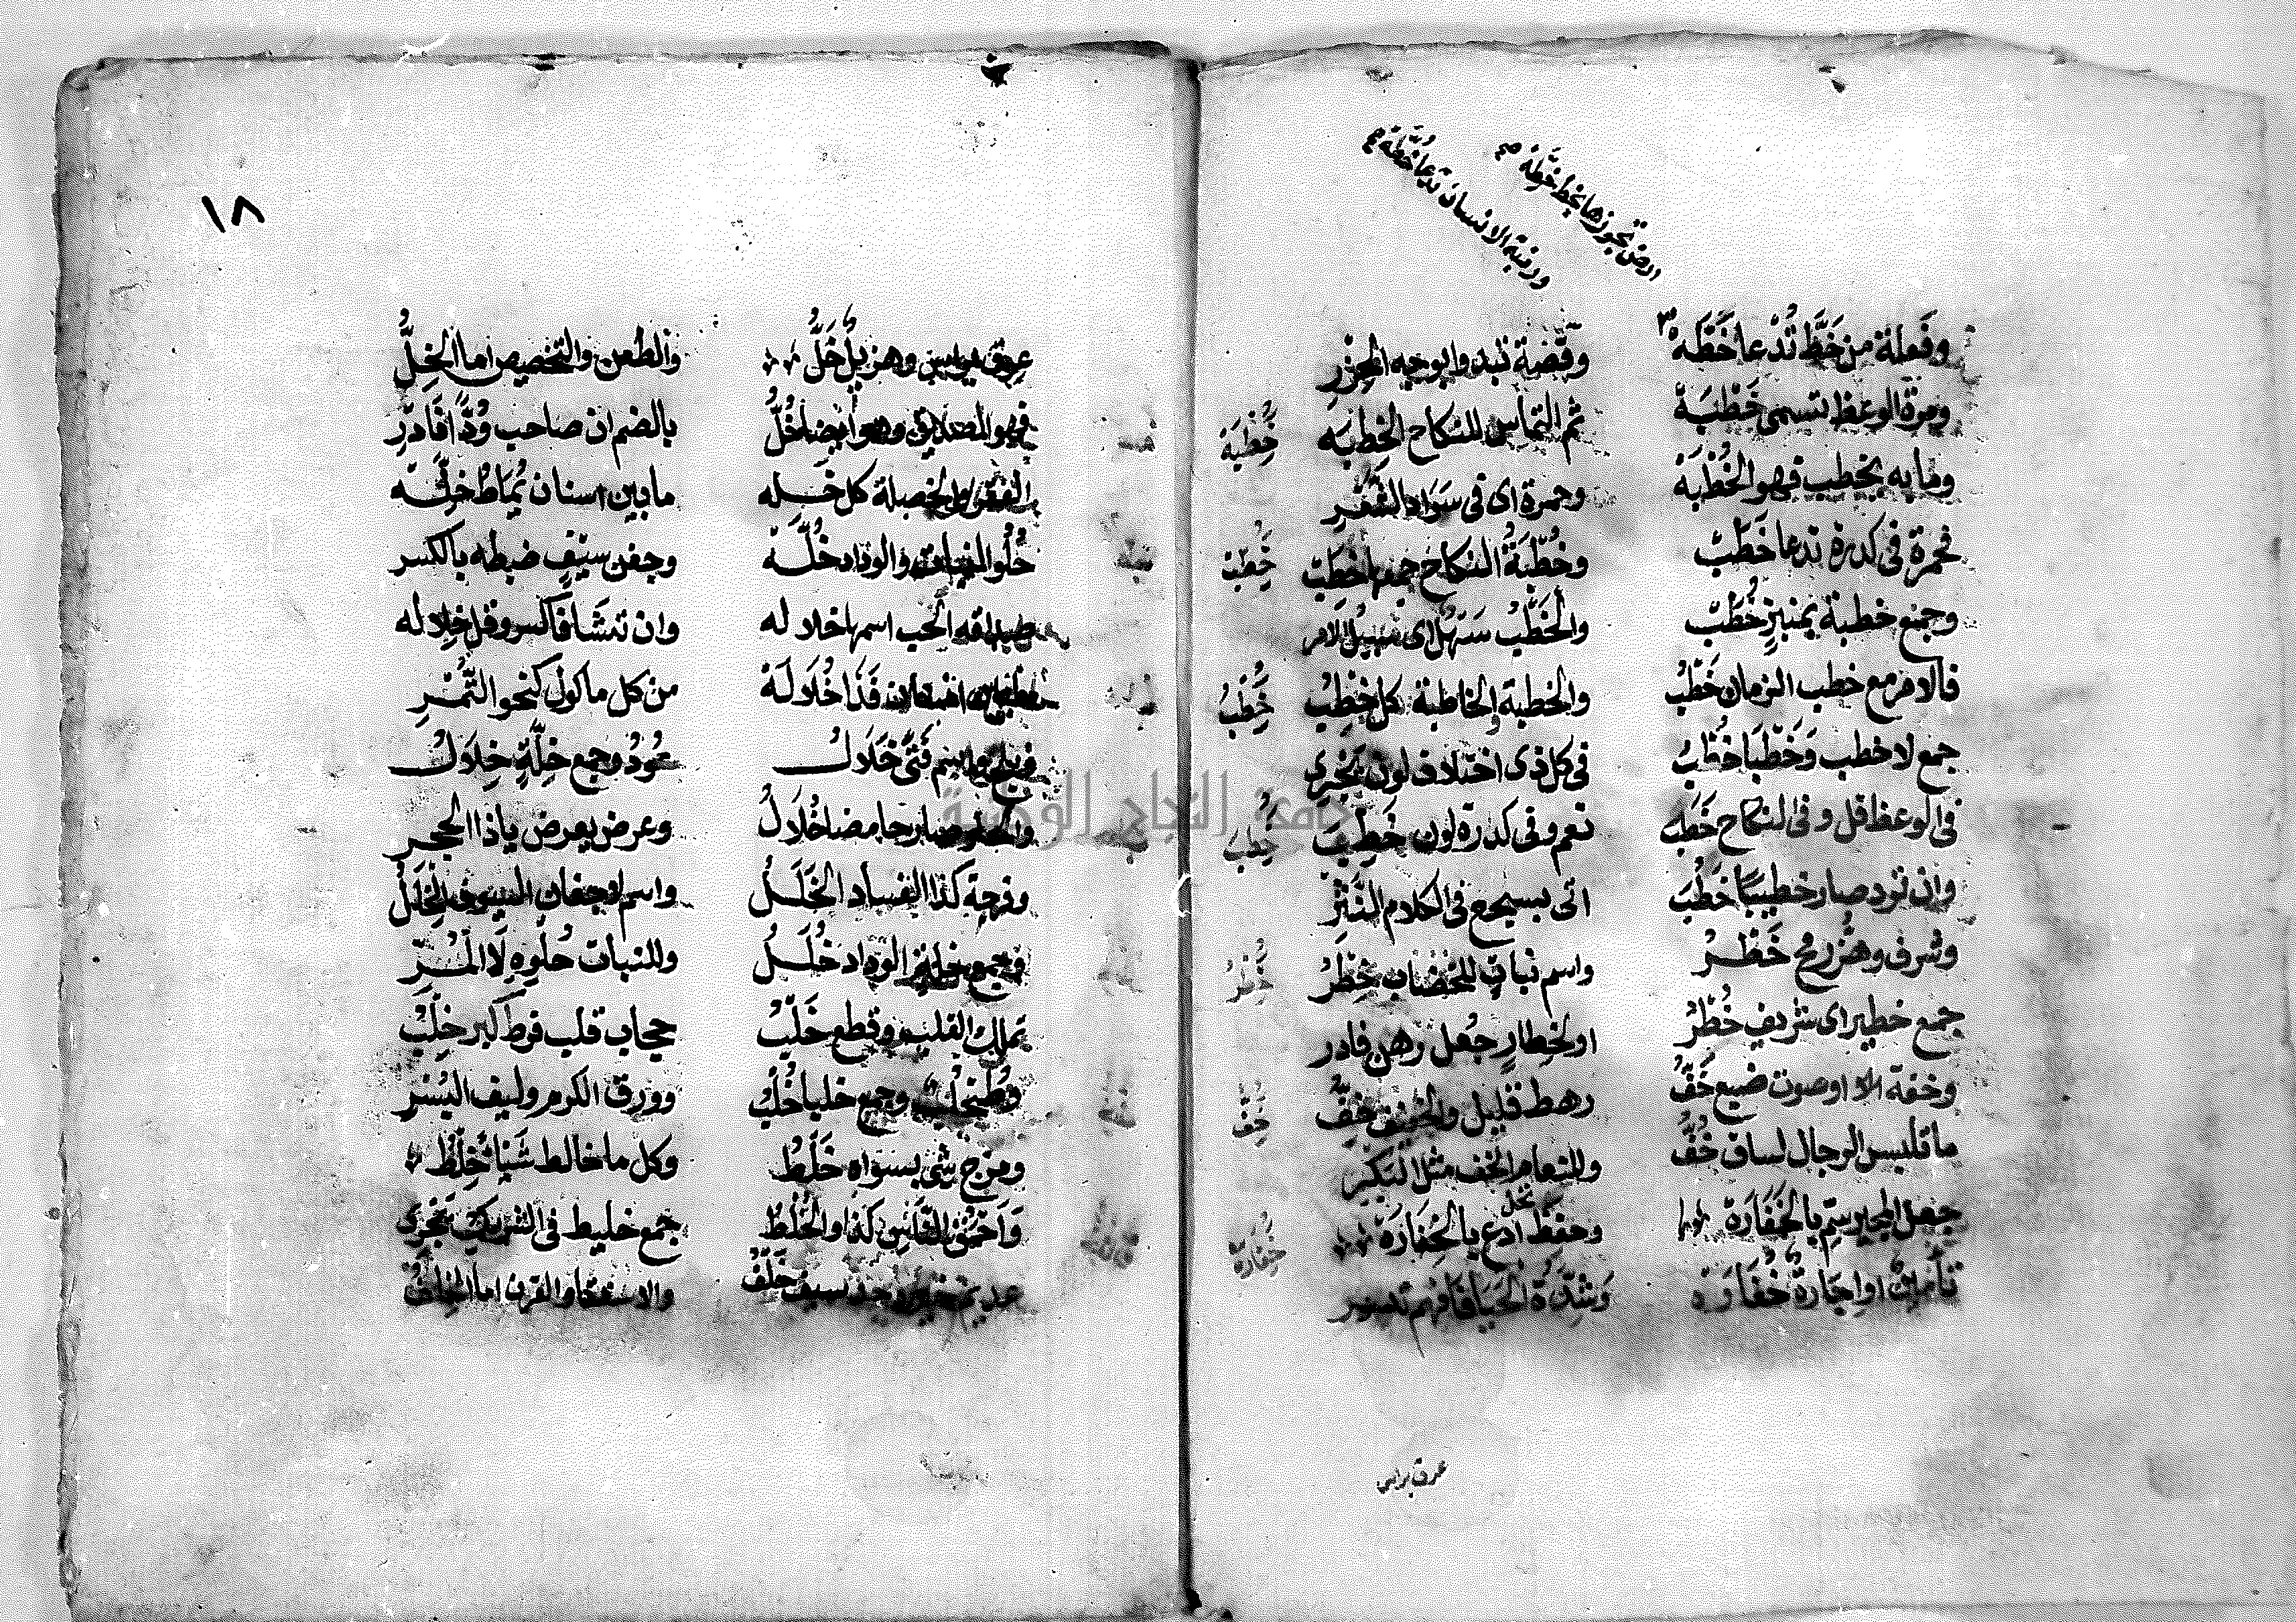 ارض تجوزها بخط خطة صح
ورتبة الانسان تدعا خطة صح
وفعلة من خَطَّ تُدعا خَطَّه وقصة تبدو ابوجه
ومرة الوعظ تسمى خَطْبَة ثم التماس للنكاح الخِطبَه
خطبة
وما به يخطب فهو الخُطْبَة وحمرة اى فى سواد
فحمرة فى كدرة تدعا خَطَب وخُطْبَةُ النكاح جمعها خِطَب
خطب
وجمع خطبة بمنبر خُطَب والخَطْبُ سهل اى سبيل الامر
فالامر مع خطب الزمان خَطْبُ والخطبة والخاطبة كل خِطْبُ
خطب
جمع لاخطب وخَطْبَا خُطْبُ فى كل ذى اختلاف لون يجرى
فى الوعظ قل وفى النكاح خَطَب نعم وفى كدرة لون خَطِبَ
خطب
وان ترد صار خطيبا خَطُبَ اتى بسجع فى الكلام النثر
وشرف وهز رمح خَطْرُ واسم نبات للخضاب خِطْرُ
خطر
جمع خطير اى شريف خُطْرُ اولخِطارٍ جُعل رهن فادر
وخفة او صوت ضبع خَفُّ رهط قليل والخفيف خِفُّ
خف
ما تلبس الرجال لساق خُفُّ وللنعام الخف مثل البكر
جعل المجير سم بالخَفَارَة وحفظ نخل ادع بالخِفَارَة
خفارة
تأمين او اجَارة خُفَارَة وشدة الحيا فافهم
عرق براس
١٨
عرق براس وهزيل خَلُّ والطعن والتخصيص اما الخِلُّ
فهو الصديق وهو ايضا خُلُّ بالضم ان صاحب وُدًّا فَادر
الفقر والخصلة كل خَله ما بين اسنان يُمَاط خِلَّه
حُلْو النبات والوداد خُلَّه وجفن سيف ضبطه بالكسر
صداقه الحب اسمها خلاله وان تشا فاكسر وقل خِلاله
فَذَا خُلالَة من كل ماكول كنحو التَّمْرِ
اسم فَتًى خَلَالُ عُودُ وجمع خِلَّةٍ خِلَالُ
صار حامضا خُلَالُ وعرض يعرض ياذا الحجر
وفرجة كذا الفساد الخَلَلُ واسم لاجفان السيوف الخِلَلُ
وجمع خلة الوداد خُلَلُ وللنبات حُلْوِه لَا المُرِّ
تملك القلب وقطع خَلْبُ حجاب قلب فوط كبر خِلْبُ
وجمع خلبا خُلْبُ وورق الكرم وليف البُسْر
ومزج شئ بسواه خَلْطُ وكل ما خالط شَيْئًا خِلْطُ
وَاحْمَق للناس كذا والخُلْطُ جمع خليط فى الشريك يَجْرِى
عديم خير وحد سيف خَلْفُ والاستقا والقرن اما الخِلْفُ